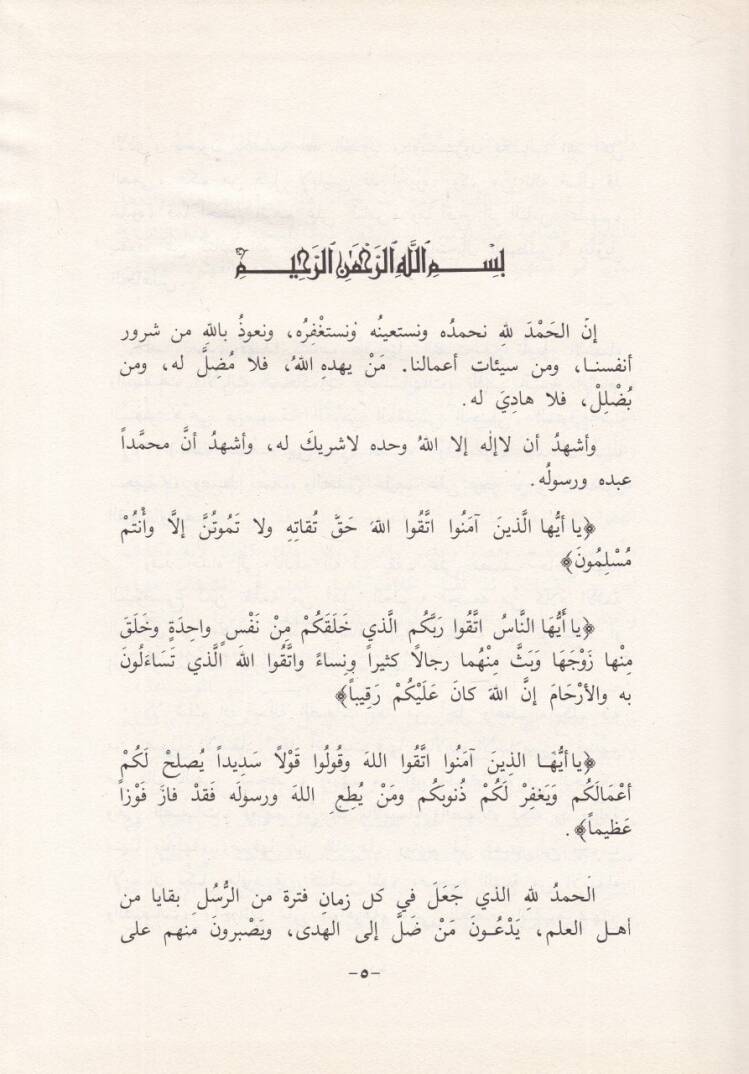 بِسْمِ اللَّهِ الرَّحْمَٰنِ الرَّحِيمِ
إنَّ الحَمْدَ للهِ نحمدُه ونستعينُه ونستغْفِرُه، ونعوذُ باللهِ من شرور
أنفسنا، ومن سيئات أعمالنا. مَنْ يهدهِ اللهُ، فلا مُضِلَّ له، ومن
يُضْلِلْ، فلا هادِيَ له.
وأشهدُ أن لاإلٰه إلا اللهُ وحده لاشريكَ له، وأشهدُ أنَّ محمَّداً
عبده ورسولُه.
﴿يا أيُّها الَّذينَ آمَنُوا اتَّقُوا اللهَ حَقَّ تُقاتِهِ ولا تَمُوتُنَّ إلَّا وأَنْتُمْ
مُسْلِمُونَ﴾
﴿يا أَيُّهَا النَّاسُ اتَّقُوا رَبَّكُم الَّذي خَلَقَكُمْ مِنْ نَفْسٍ واحِدَةٍ وخَلَقَ
مِنْها زَوْجَهَا وَبَثَّ مِنْهُما رجالاً كثيراً ونِساءً واتَّقُوا اللهَ الَّذي تَسَاءَلُونَ
به والأرْحَامَ إنَّ اللهَ كانَ عَلَيْكُمْ رَقِيباً﴾
﴿يا أيُّهَا الذِينَ آمَنُوا اتَّقُوا اللهَ وقُولُوا قَوْلاً سَدِيداً يُصلحْ لَكُمْ
أعْمَالَكُم وَيَغفِرْ لَكُمْ ذُنوبكُم ومَنْ يُطِعِ اللهَ ورسولَه فَقَدْ فازَ فَوْزاً
عَظيماً﴾.
الحمدُ للهِ الذي جَعَلَ في كل زمانِ فترة من الرُّسُلِ بقايا من
أهل العلم، يَدْعُونَ مَنْ ضَلَّ إلى الهدى، ويَصْبرونَ منهم على
-٥-